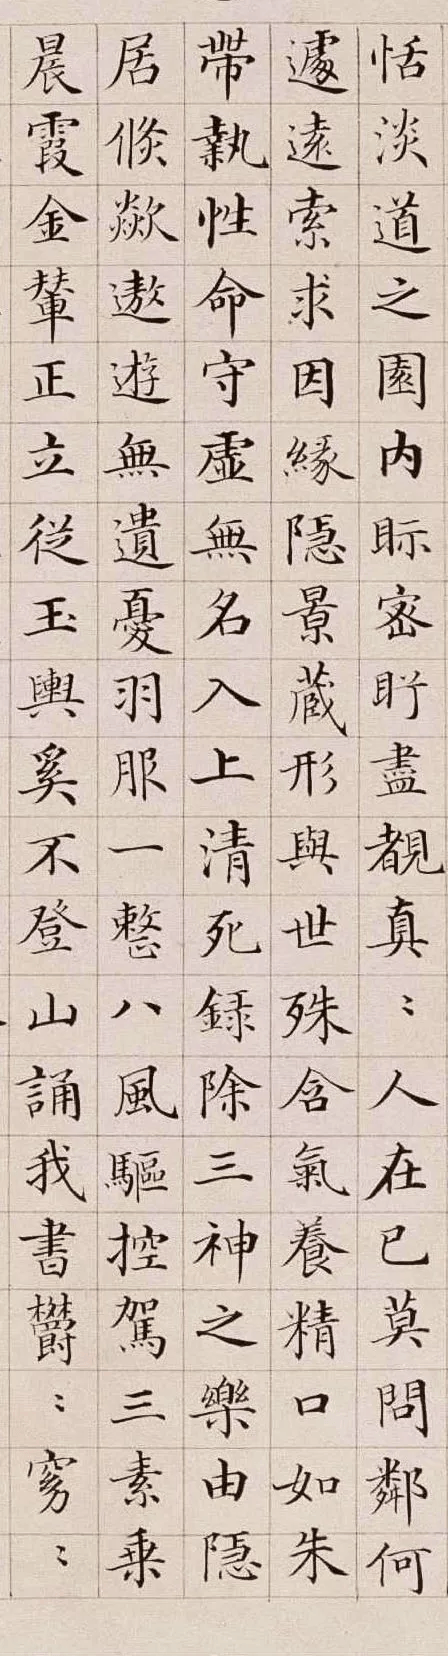 恬淡道之園内眎密盻盡覩真〻人在己莫問鄰何
遽遠索求因緣隱景藏形與世殊含氣養精口如朱
帶執性命守虛無名入上清死録除三神之樂由隱
居倏欻遨遊無遺憂羽服一整八風驅控駕三素乗
晨霞金輦正立從玉輿奚不登山誦我書欝〻窈〻